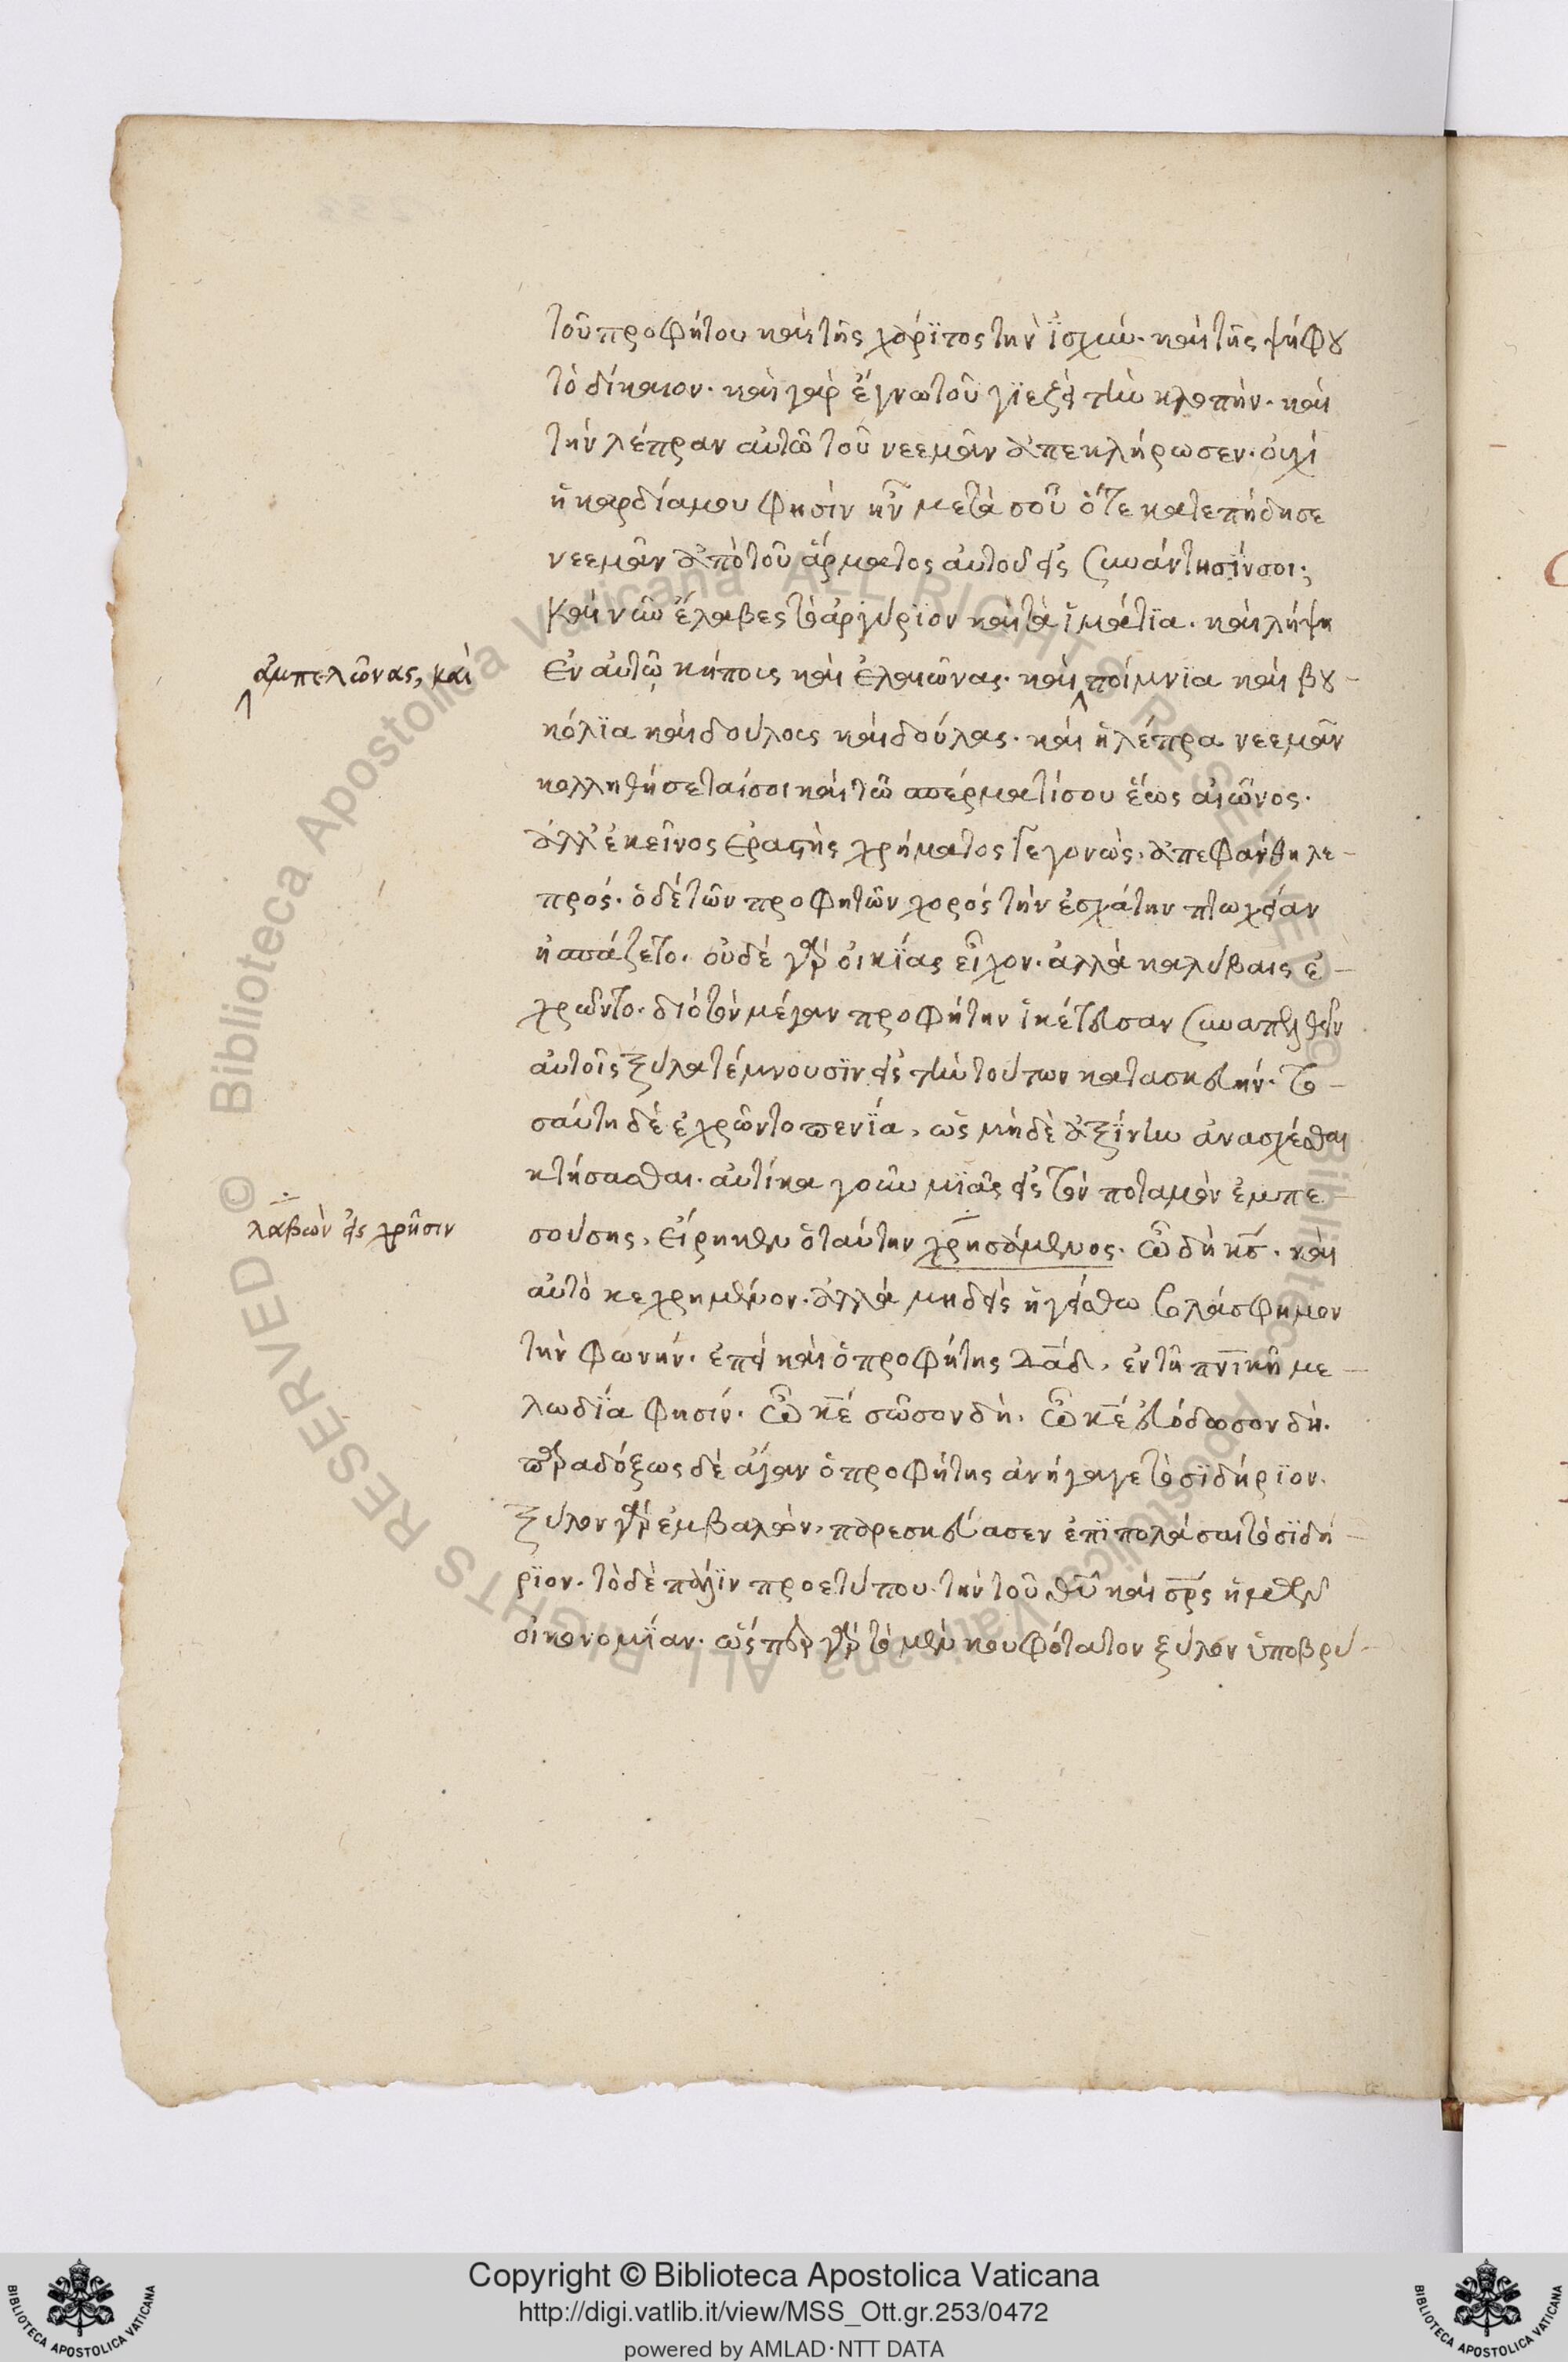 τοῦ προφήτου καὶ τῆς χάρϊτος τὴν ἰ̈σχύν· καὶ τῆς ψήφου
τὸ δίκαιον· καὶ γὰρ ἔγνω τοῦ γϊεζεὶ τὴν κλοπήν· καὶ
τὴν λέπραν αὐτῶ τοῦ νεεμὰν ἀπεκλήρωσεν· οὐχὶ
ἡ καρδία μου φησὶν ἦν μετὰ σοῦ ὅτε κατεπήδησε
νεεμὰν ἀπὸ τοῦ ἅρματος αὐτοῦ εἰς συνάντησΐν σοι;
καὶ νῦν ἔλαβες τὸ ἀργύρϊον καὶ τὰ ἱμάτϊα· καὶ λήψη
ἀμπελῶνας, καὶ
ἐν αὐτῷ κήπους καὶ ἐλαιῶνας· καὶ ποίμνϊα καὶ βου-
κόλϊα καὶ δούλους καὶ δούλας· καὶ ἡ λέπρα νεεμὰν
κολληθήσεταί σοι καὶ τῶ σπέρματί σου ἕως αἰῶνος·
ἀλλ' ἐκεῖνος ἐραστὴς χρήματος γεγονὼς, ἀπεφάνθη λε-
πρός· ὁ δὲ τῶν προφητῶν χορὸς τὴν ἐσχάτην πτωχείαν
ἠσπάζετο· οὐδὲ γὰρ οἰκΐας εἶχον· ἀλλὰ καλύβαις ἐ-
χρῶντο· διὸ τὸν μέγαν προφήτην ἱκέτευσαν συναπελθεῖν
αὐτοῖς ξύλα τέμνουσϊν εἰς τὴν τούτων κατασκευήν· το-
σαύτη δὲ ἐχρῶντο πενΐα, ὡς μὴ δὲ ἀξΐνην ἀνασχέσθαι
κτήσασθαι· αὐτίκα γοῦν μϊᾶς εἰς τὸν ποταμὸν ἐμπε-
λαβὼν εἰς χρῆσιν
σούσης, εἴρηκεν ὁ ταύτην χρησάμενος· ὦ δὴ κε̄· καὶ
αὐτὸ κεχρημένον· ἀλλὰ μηδεὶς ἡγείσθω βλάσφημον
τὴν φωνήν· ἐπεὶ καὶ ὁ προφήτης δᾱδ, ἐν τῆ πνῑκῆ με-
λωδΐα φησίν· ὦ κε̄ σῶσον δή, ὦ κε̄ εὐόδωσον δή·
παραδόξως δὲ ἄγαν ὁ προφήτης ἀνήγαγε τὸ σϊδήρϊον·
ξύλον γὰρ ἐμβαλὼν, παρεσκεύασεν ἐπϊπολάσαι τὸ σϊδή-
ρϊον· τὸ δὲ πάλϊν προετύπου τὴν τοῦ θῡ καὶ σρ̄ς ἡμῶν
οἰκονομΐαν· ὥσπερ γὰρ τὸ μὲν κουφότατον ξύλον ὑποβρύ-
Copyright © Biblioteca Apostolica Vaticana
http://digi.vatlib.it/view/MSS_Ott.gr.253/0472
powered by AMLAD·NTT DATA
BIBLIOTECA APOSTOLICA VATICANA
BIBLIOTECA APOSTOLICA VATICANA
Biblioteca Apostolica Vaticana ALL RIGHTS RESERVED ©
Biblioteca Apostolica Vaticana ALL RIGHTS RESERVED ©